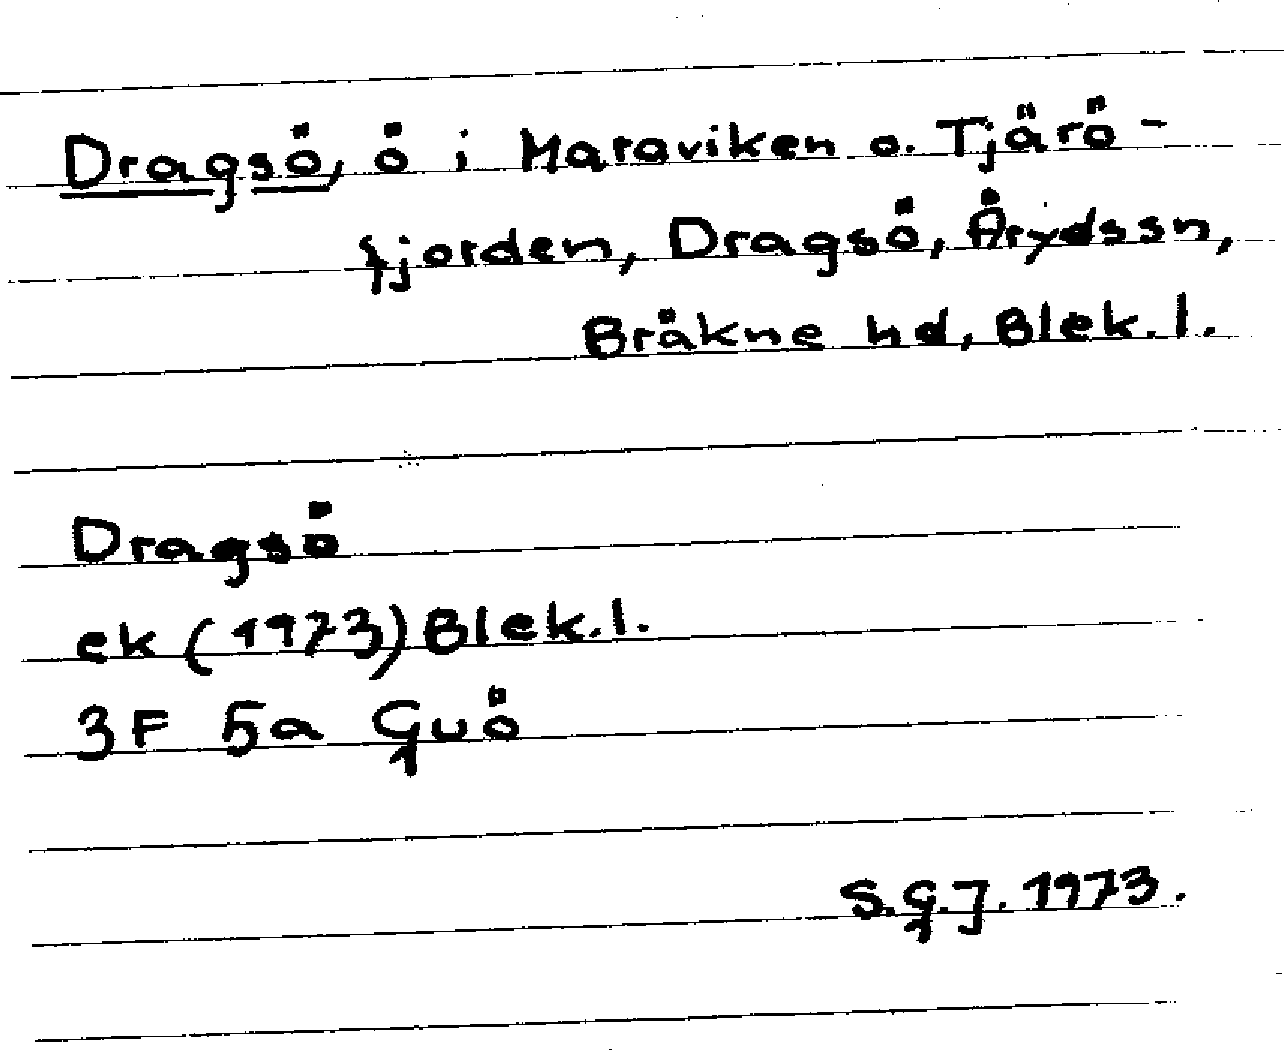 Dragsö, ö i Maraviken o. Tjärö-
fjorden, Dragsö, Årydssn,
Bräkne hd, Blek.l.
Dragsö
ek (1973) Blek.l.
3F 5a Guö
S.G.J. 1973.